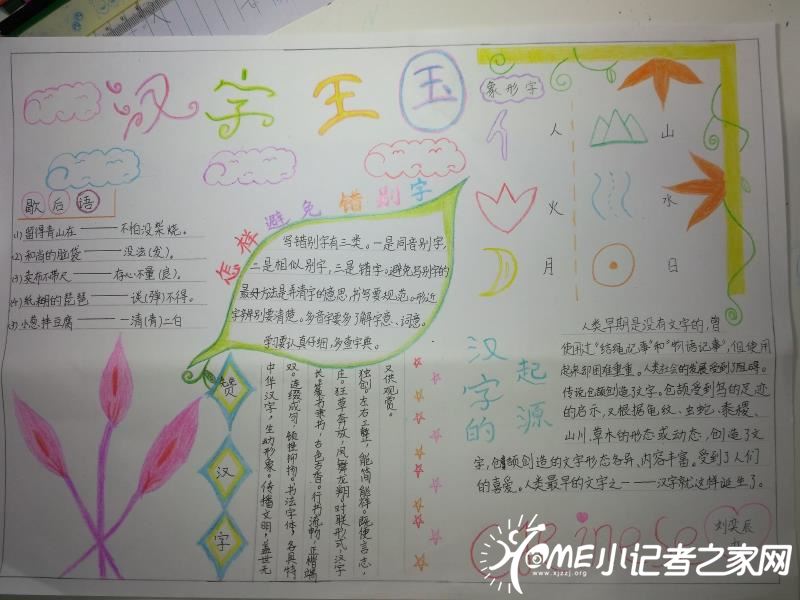 汉字王国
歇后语
(1)留得青山在——不怕没柴烧。
(2)和尚的脑袋——没法(发)。
(3)卖布不带尺——存心不量(良)。
(4)纸糊的琵琶——谈(弹)不得。
(5)小葱拌豆腐——一清(青)二白
怎样避免错别字
写错别字有三类。一是同音别字,
二是相似别字,三是错字。避免写别字的
最好方法是弄清字的意思,书写要规范。形近
字辨别要清楚。多音字要多了解字意、词意。
学习要认真仔细,多查字典。
象形字
人
山
火
水
月
日
赞汉字
中华汉字,生动形象。传播文明,盖世无
双。连缀成句,顿挫抑扬。书法字体,各具特
长。篆书隶书,古色古香。行书流畅,正楷端
庄。狂草奔放,凤舞龙翔。对联形式,汉字
独创。左右工整,能简能详。既便言志,
又供观赏。
汉字的起源
人类早期是没有文字的,曾
使用过“结绳记事”和“刻语记事”,但使用
起来却困难重重。人类社会的发展受到了阻碍。
传说仓颉创造了文字。仓颉受到鸟的足迹
的启示,又根据龟纹、虫蛇、黍稷、
山川、草木的形态或动态,创造了文
字,仓颉创造的文字形态各异、内容丰富。受到了人们
的喜爱。人类最早的文字之一——汉字就这样诞生了。
刘奕辰
HOME小记者之家网
www.xjzzj.org